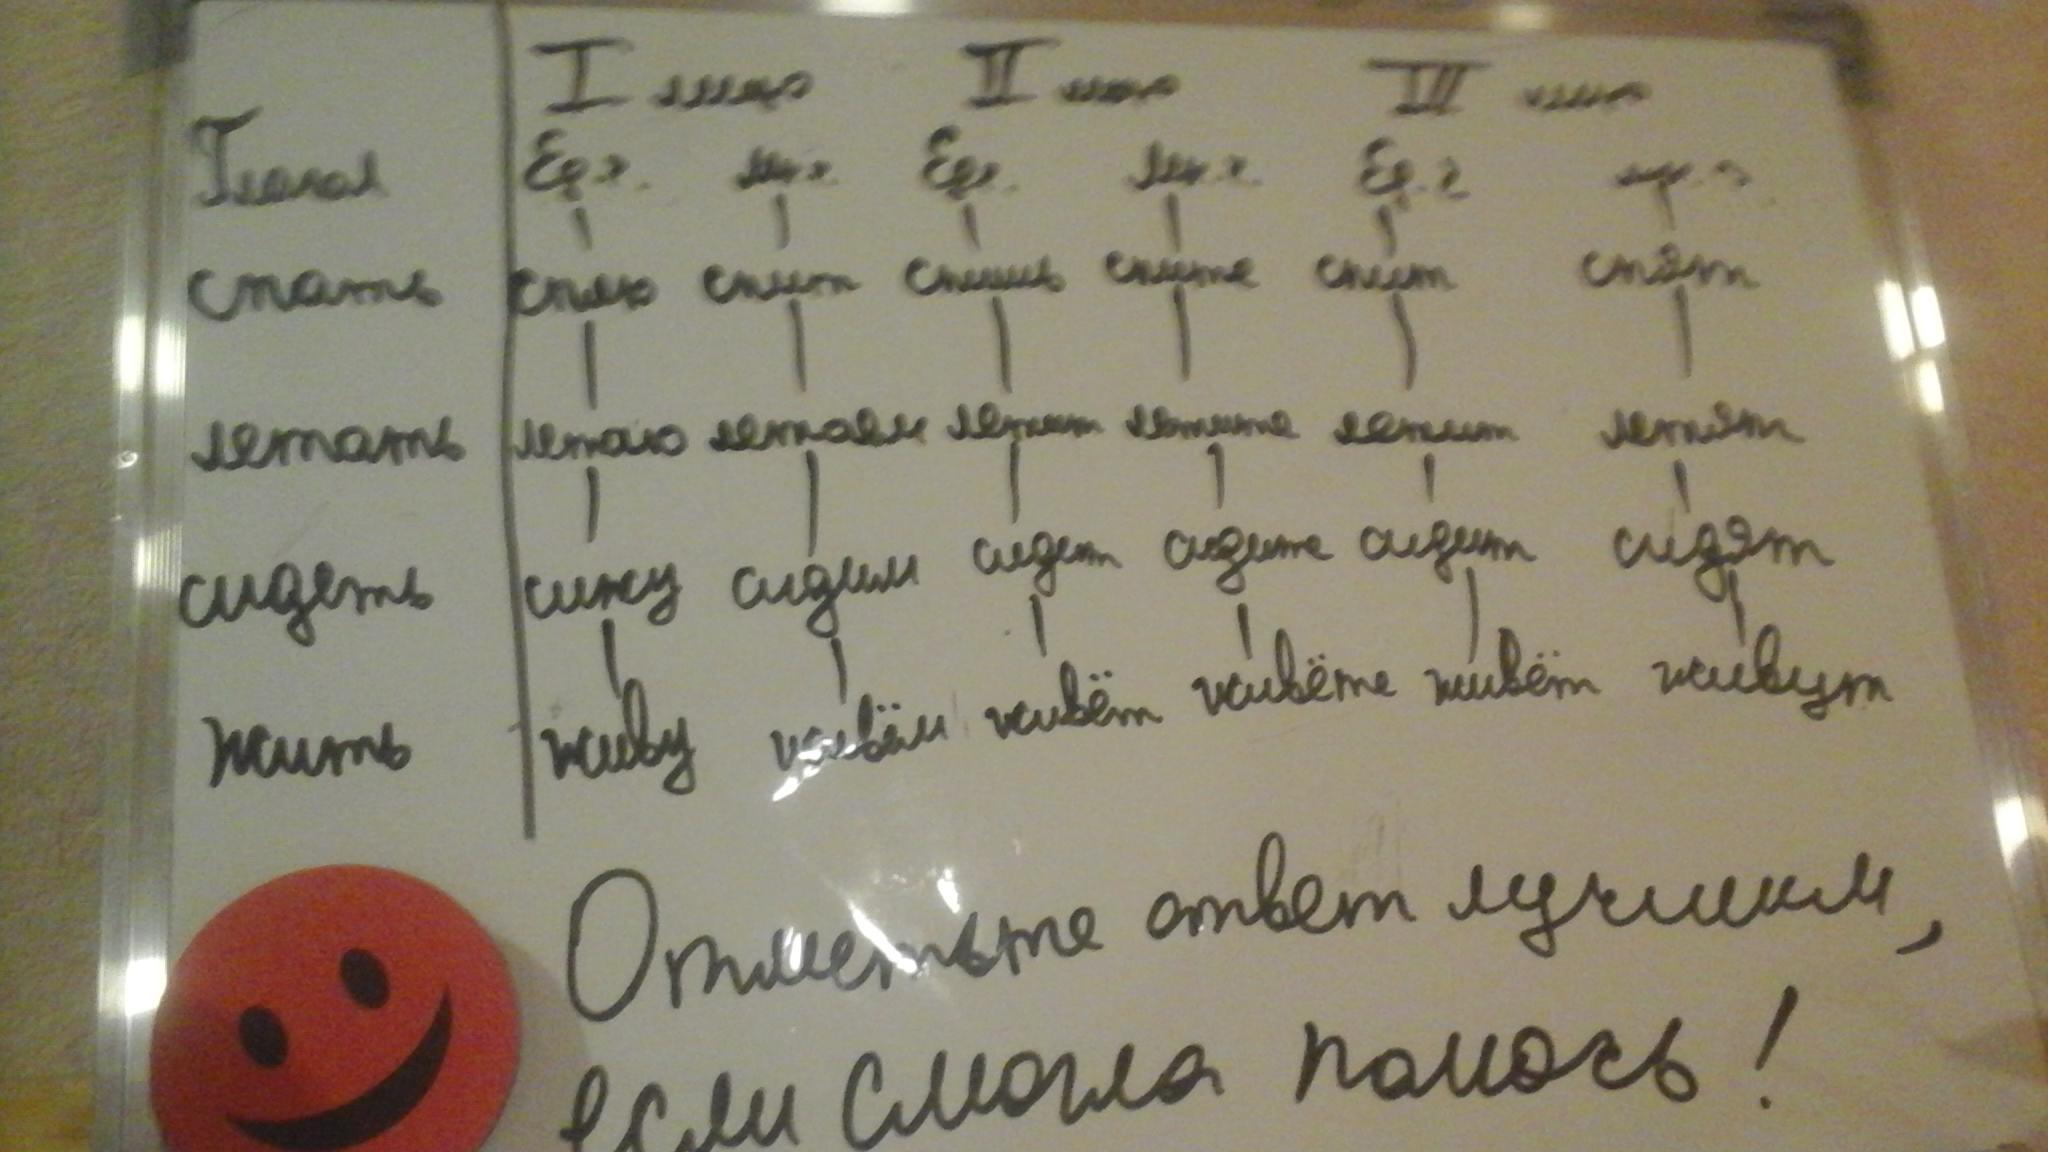 I лицо II лицо III лицо
Глагол Ед.ч. мн.ч. Ед.ч. Мн.ч. Ед.ч. мн.ч.
спать сплю спит спишь спите спит спят
летать летаю летаем летит летите летит летят
сидеть сижу сидим сидит сидите сидит сидят
жить живу живём живёт живёте живёт живут
Отметьте ответ лучшим,
если смогла помочь!